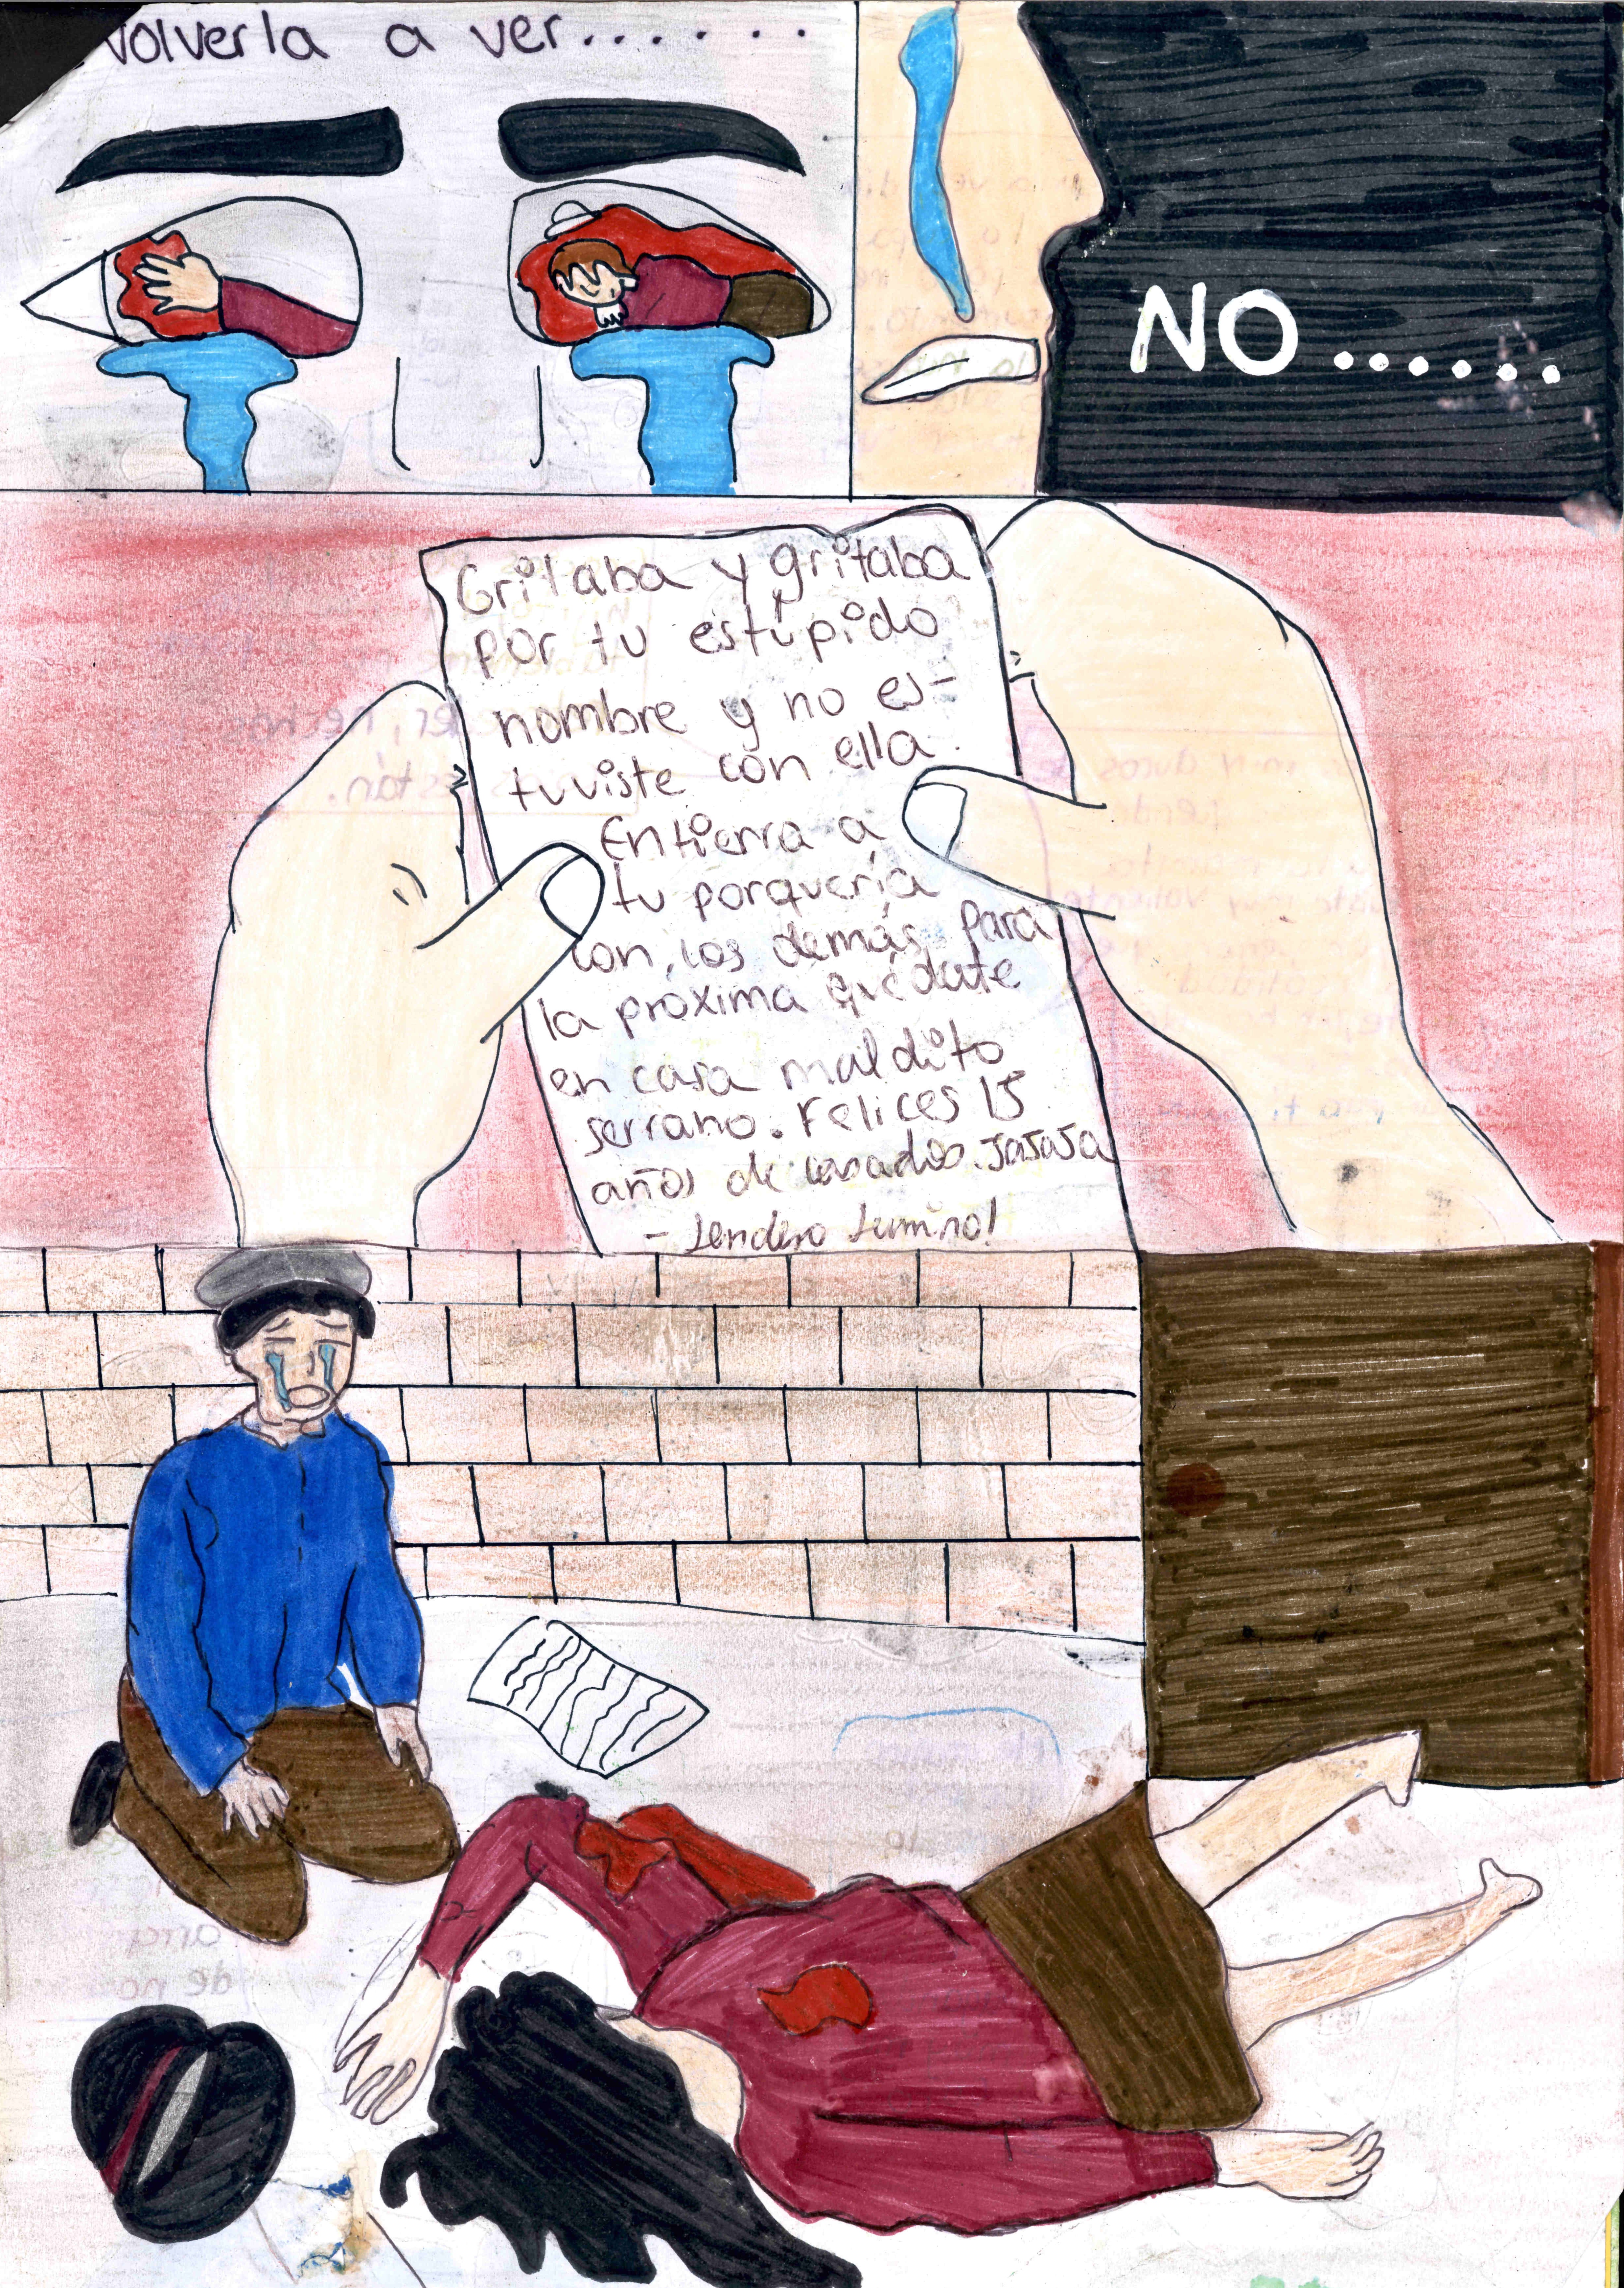 volverla a ver......
NO......
Gritaba y gritaba
por tu estúpido
nombre y no es-
tuviste con ella.
Entierra a
tu porquería
con los demás, para
la próxima quédate
en casa maldito
serrano. Felices 15
años de casados. JAJAJA
- Sendero Lumino!